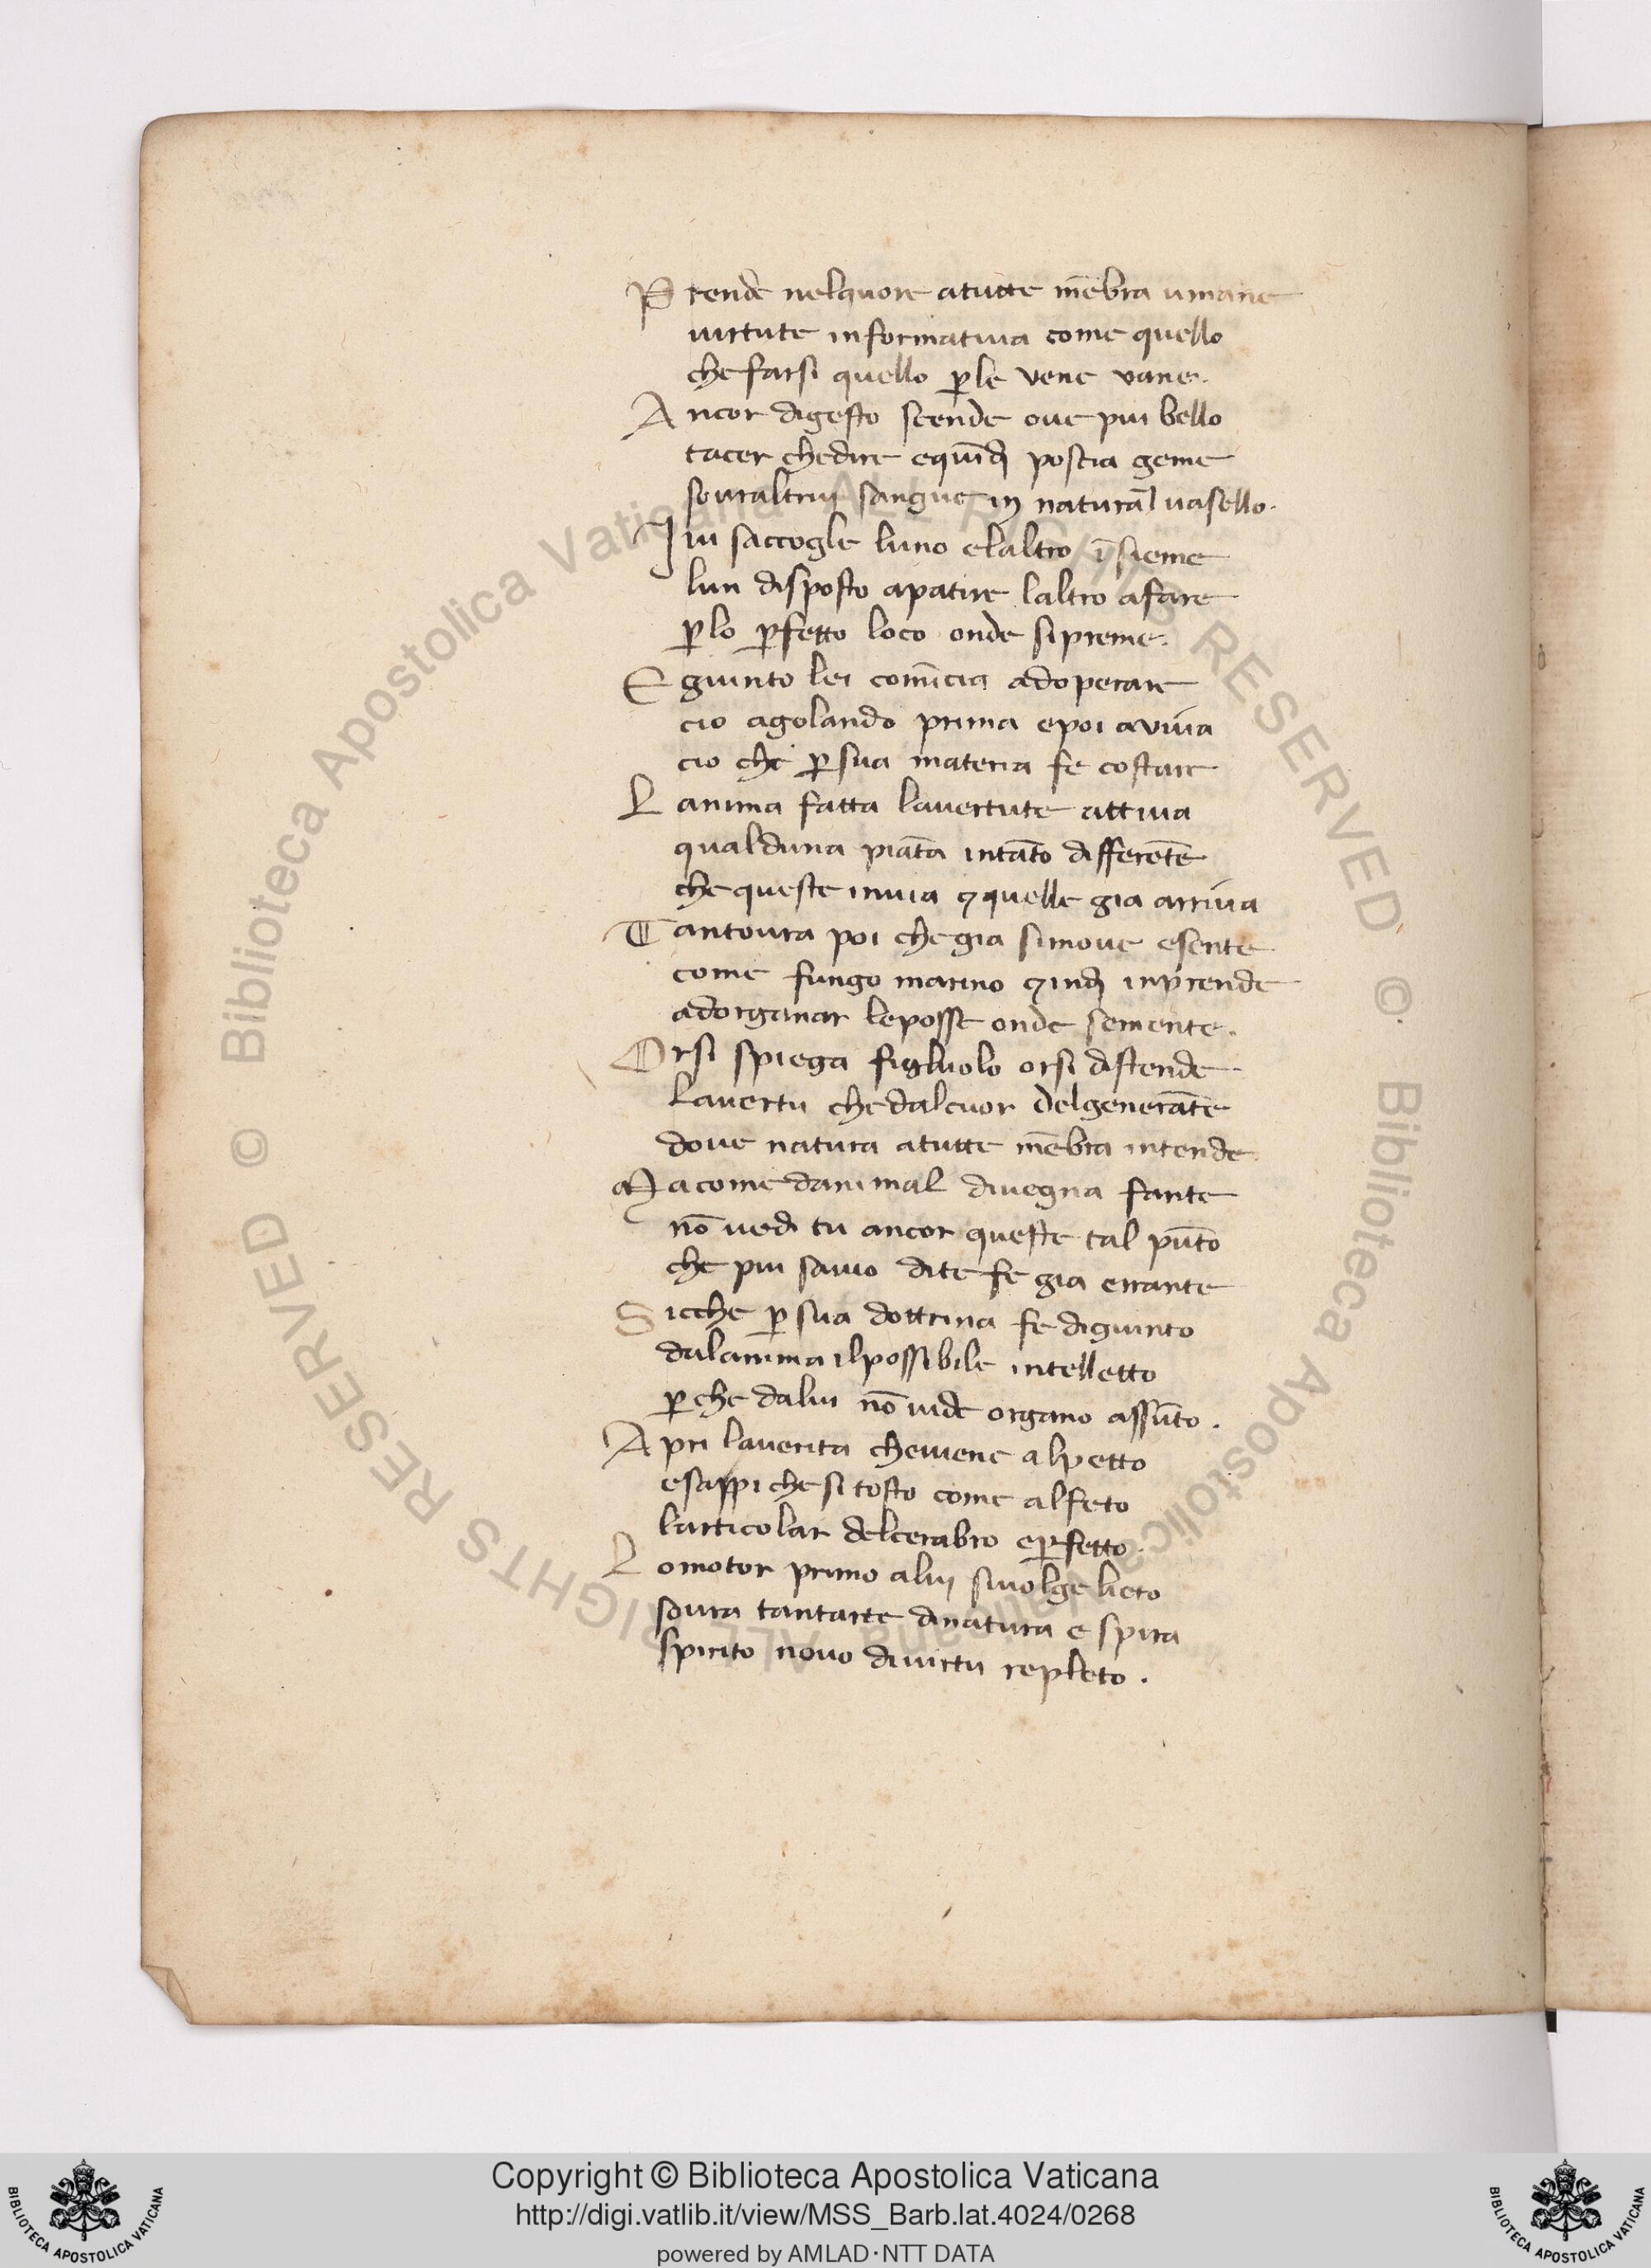 Prende nelquore atutte mēbra umane
uirtute informatiua come quello
che farsi quello ꝑle vene vane.
Ancor digesto scende oue piu bello
tacer chedire equīdi postia geme
souraltrui sangue in naturāl uasello.
Iui saccogle luno elaltro īsieme
lun disposto apatire laltro afare
ꝑlo ꝑfetto loco onde sipreme.
E giunto lei comīcia adoperare
cio agolando prima epoi aviua
cio che ꝑsua materia fe costare
Lanima fatta lauertute attiua
qualduna piāta intāto differēte
che queste inuia ⁊ quelle gia arriua
Tantoura poi chegia simoue esente
come fungo marino ⁊ indi inprende
adorganar leposse onde semente.
Orsi spiega figluolo orsi distende
lauertu chedalcuor delgenerāte
doue natura atutte mēbra intende
Macome danimal diuegna fante
nō uedi tu ancor queste tal pūto
che piu sauio dite fe gia errante
Sicche ꝑsua dottrina fe digiunto
dalanima ilpossibile intelletto
ꝑche dalui nō uide organo assūto.
Apri lauerita cheuiene alpetto
esappi chesi tosto come alfeto
larticolar delcerabro eꝑfetto.
Lomotor primo alui siuolge lieto
soura tantarte dinatura e spira
spirito nouo diuirtu repleto.
© Biblioteca Apostolica Vaticana ALL RIGHTS RESERVED © Biblioteca Apostolica Vaticana ALL RIGHTS RESERVED
Copyright © Biblioteca Apostolica Vaticana
http://digi.vatlib.it/view/MSS_Barb.lat.4024/0268
powered by AMLAD·NTT DATA
BIBLIOTECA APOSTOLICA VATICANA
BIBLIOTECA APOSTOLICA VATICANA